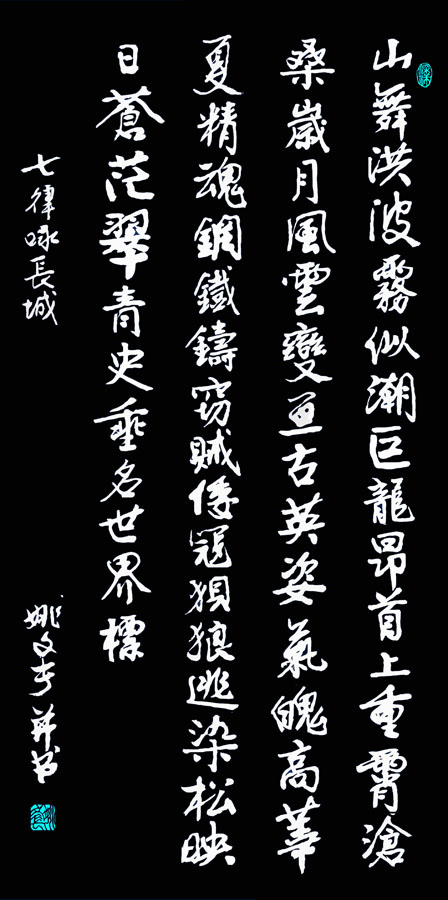 山舞洪波霧似潮巨龍昂首上重霄滄
桑歲月風雲變亘古英姿氣魄高華
夏精魂鋼鐵鑄窃賊倭冦狽狼逃染松映
日蒼茫翠青史垂名世界標
七律咏長城
姚文并书